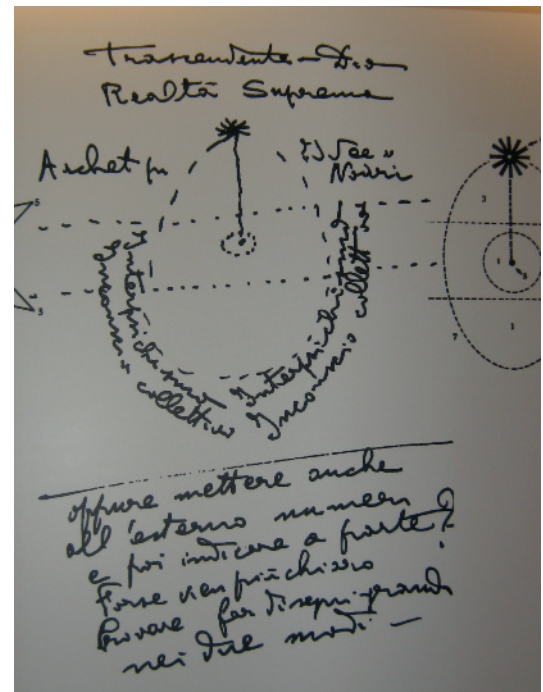 Trascendente - Dio
Realtà Suprema
Archetipi
Idee o
5
3
Interpsichismo
Inconscio collettivo
Interpsichismo
Inconscio collettivo
3
1
7
oppure mettere anche
all'esterno numeri
e poi indicare a parte?
Forse vien più chiaro
Provare far disegni grandi
nei due modi -